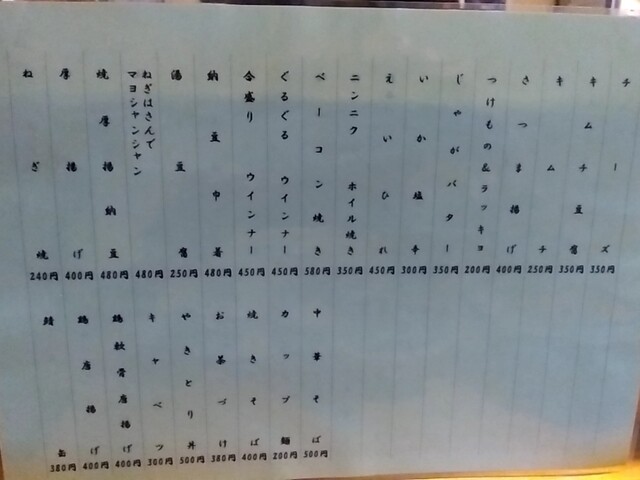 チーズ 350円
キムチ豆腐 350円
キムチ 250円
さつま揚げ 400円
つけもの&ラッキョ 200円
じゃがバター 350円
いか塩辛 300円
えいひれ 450円
ニンニク ホイル焼き 350円
ベーコン焼き 580円
ぐるぐる ウインナー 450円
合盛り ウインナー 450円
納豆巾着 480円
湯豆腐 250円
ねぎはさんで
マヨシャンシャン 480円
焼厚揚納豆 480円
厚揚げ 400円
ねぎ焼 240円
中華そば 500円
カップ麺 200円
焼きそば 400円
お茶づけ 380円
やきとり丼 500円
キャベツ 300円
鶏軟骨唐揚げ 400円
鶏唐揚げ 400円
鯖缶 380円